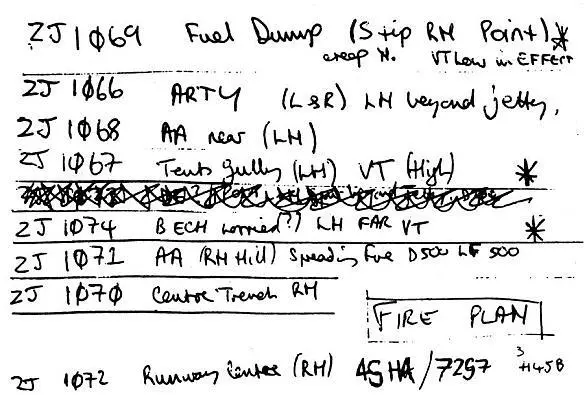 ZJ 1069 Fuel Dump (Stip RM Point)*
creep N. VT Low in EFFECT
ZJ 1066 ARTY (L&R) LH beyond jetty,
ZJ 1068 AA near (LH)
ZJ 1067 Tents gulley (LH) VT (High) *
ZJ 1074 B ECH worried(?) LH FAR VT *
ZJ 1071 AA (RH Hill) Spreading Fire D500 LF 500
ZJ 1070 Centre Trench RM
FIRE PLAN
ZJ 1072 Runway Centre (RH) 45HA/7257